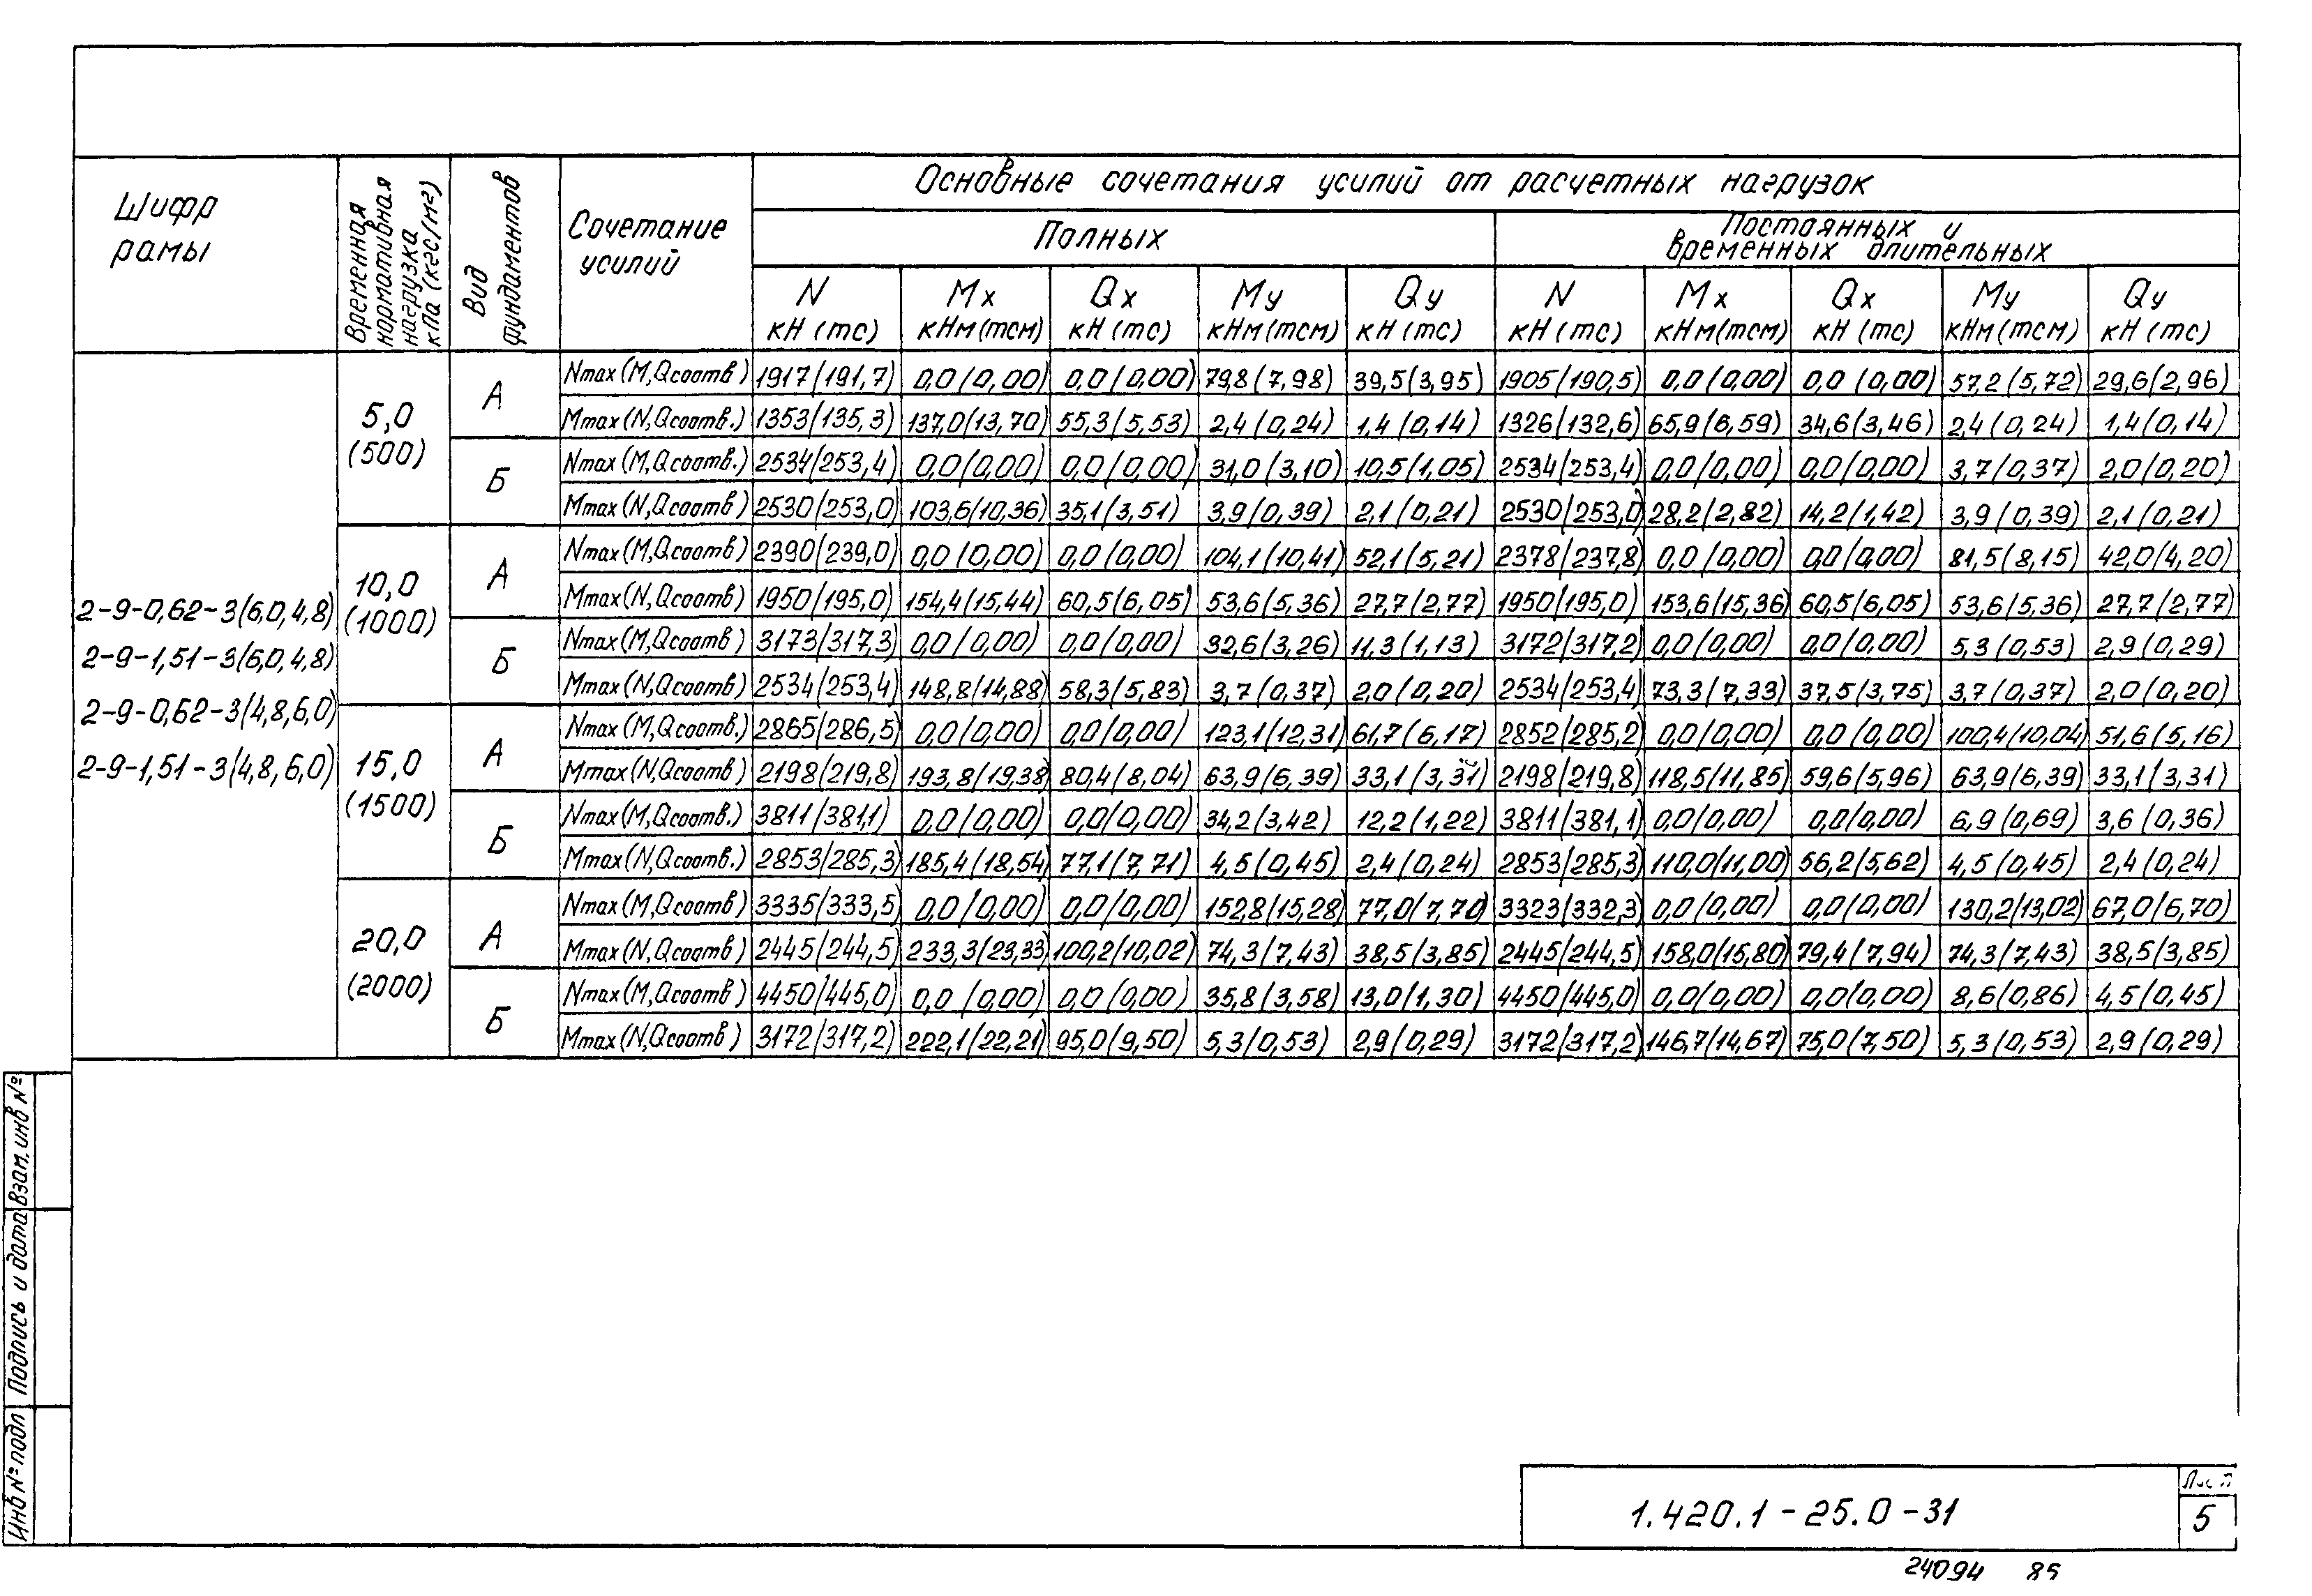 Шифр рамы
Временная нормативная нагрузка кПа (кгс/м²)
Вид фундаментов
Сочетание усилий
Основные сочетания усилий от расчетных нагрузок
Полных
Постоянных и временных длительных
N кН (тс) Mx кНм (тсм) Qx кН (тс) My кНм (тсм) Qy кН (тс) N кН (тс) Mx кНм (тсм) Qx кН (тс) My кНм (тсм) Qy кН (тс)
2-9-0,62-3(6,0,4,8)
2-9-1,51-3(6,0,4,8)
2-9-0,62-3(4,8,6,0)
2-9-1,51-3(4,8,6,0)
5,0 (500)
А
Nmax (M,Qсоотв) 1917(191,7) 0,0(0,00) 0,0(0,00) 79,8(7,98) 39,5(3,95) 1905(190,5) 0,0(0,00) 0,0(0,00) 57,2(5,72) 29,6(2,96)
Mmax (N,Qсоотв.) 1353(135,3) 137,0(13,70) 55,3(5,53) 2,4(0,24) 1,4(0,14) 1326(132,6) 65,9(6,59) 34,6(3,46) 2,4(0,24) 1,4(0,14)
Б
Nmax (M,Qсоотв.) 2534(253,4) 0,0(0,00) 0,0(0,00) 31,0(3,10) 10,5(1,05) 2534(253,4) 0,0(0,00) 0,0(0,00) 3,7(0,37) 2,0(0,20)
Mmax (N,Qсоотв) 2530(253,0) 103,6(10,36) 35,1(3,51) 3,9(0,39) 2,1(0,21) 2530(253,0) 28,2(2,82) 14,2(1,42) 3,9(0,39) 2,1(0,21)
10,0 (1000)
А
Nmax (M,Qсоотв) 2390(239,0) 0,0(0,00) 0,0(0,00) 104,1(10,41) 52,1(5,21) 2378(237,8) 0,0(0,00) 0,0(0,00) 81,5(8,15) 42,0(4,20)
Mmax (N,Qсоотв) 1950(195,0) 154,4(15,44) 60,5(6,05) 53,6(5,36) 27,7(2,77) 1950(195,0) 153,6(15,36) 60,5(6,05) 53,6(5,36) 27,7(2,77)
Б
Nmax (M,Qсоотв) 3173(317,3) 0,0(0,00) 0,0(0,00) 32,6(3,26) 11,3(1,13) 3172(317,2) 0,0(0,00) 0,0(0,00) 5,3(0,53) 2,9(0,29)
Mmax (N,Qсоотв) 2534(253,4) 148,8(14,88) 58,3(5,83) 3,7(0,37) 2,0(0,20) 2534(253,4) 73,3(7,33) 37,5(3,75) 3,7(0,37) 2,0(0,20)
15,0 (1500)
А
Nmax (M,Qсоотв.) 2865(286,5) 0,0(0,00) 0,0(0,00) 123,1(12,31) 61,7(6,17) 2852(285,2) 0,0(0,00) 0,0(0,00) 100,4(10,04) 51,6(5,16)
Mmax (N,Qсоотв) 2198(219,8) 193,8(19,38) 80,4(8,04) 63,9(6,39) 33,1(3,31) 2198(219,8) 118,5(11,85) 59,6(5,96) 63,9(6,39) 33,1(3,31)
Б
Nmax (M,Qсоотв.) 3811(381,1) 0,0(0,00) 0,0(0,00) 34,2(3,42) 12,2(1,22) 3811(381,1) 0,0(0,00) 0,0(0,00) 6,9(0,69) 3,6(0,36)
Mmax (N,Qсоотв.) 2853(285,3) 185,4(18,54) 77,1(7,71) 4,5(0,45) 2,4(0,24) 2853(285,3) 110,0(11,00) 56,2(5,62) 4,5(0,45) 2,4(0,24)
20,0 (2000)
А
Nmax (M,Qсоотв) 3335(333,5) 0,0(0,00) 0,0(0,00) 152,8(15,28) 77,0(7,70) 3323(332,3) 0,0(0,00) 0,0(0,00) 130,2(13,02) 67,0(6,70)
Mmax (N,Qсоотв) 2445(244,5) 233,3(23,33) 100,2(10,02) 74,3(7,43) 38,5(3,85) 2445(244,5) 158,0(15,80) 79,4(7,94) 74,3(7,43) 38,5(3,85)
Б
Nmax (M,Qсоотв) 4450(445,0) 0,0(0,00) 0,0(0,00) 35,8(3,58) 13,0(1,30) 4450(445,0) 0,0(0,00) 0,0(0,00) 8,6(0,86) 4,5(0,45)
Mmax (N,Qсоотв) 3172(317,2) 222,1(22,21) 95,0(9,50) 5,3(0,53) 2,9(0,29) 3172(317,2) 146,7(14,67) 75,0(7,50) 5,3(0,53) 2,9(0,29)
Взам. инв №
Подпись и дата
Инв № подл
1.420.1-25.0-31
Лист
5
24094 85